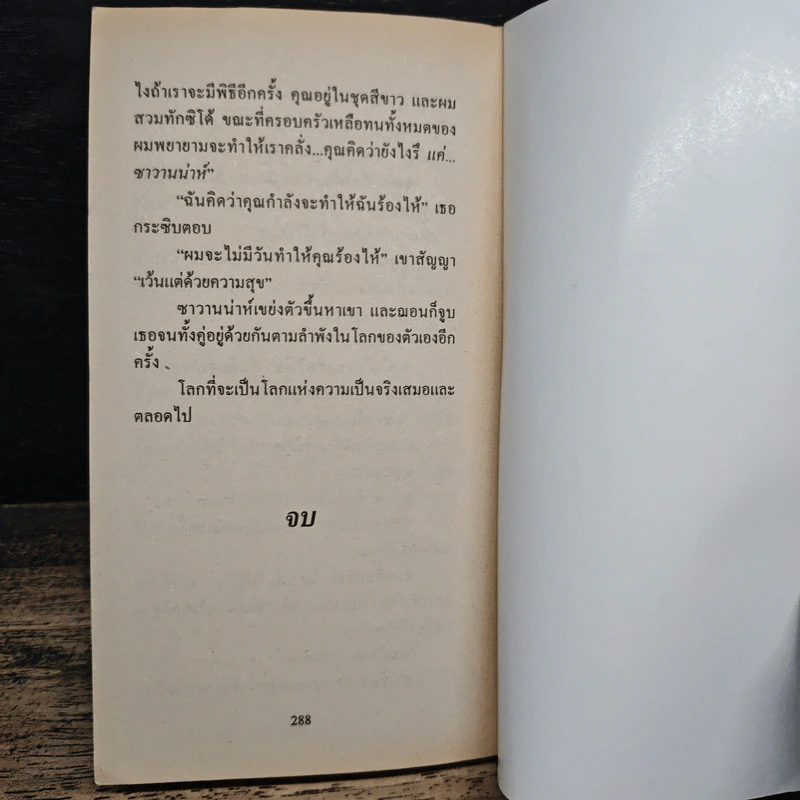 ไงถ้าเราจะมีพิธีอีกครั้ง คุณอยู่ในชุดสีขาว และผม
สวมทักซิโด้ ขณะที่ครอบครัวเหลือทนทั้งหมดของ
ผมพยายามจะทำให้เราคลั่ง...คุณคิดว่ายังไงรึ แค่...
ซาวานน่าห์”
“ฉันคิดว่าคุณกำลังจะทำให้ฉันร้องไห้” เธอ
กระซิบตอบ
“ผมจะไม่มีวันทำให้คุณร้องไห้” เขาสัญญา
“เว้นแต่ด้วยความสุข”
ซาวานน่าห์เขย่งตัวขึ้นหาเขา และฌอนก็จูบ
เธอจนทั้งคู่อยู่ด้วยกันตามลำพังในโลกของตัวเองอีก
ครั้ง
โลกที่จะเป็นโลกแห่งความเป็นจริงเสมอและ
ตลอดไป
จบ
288